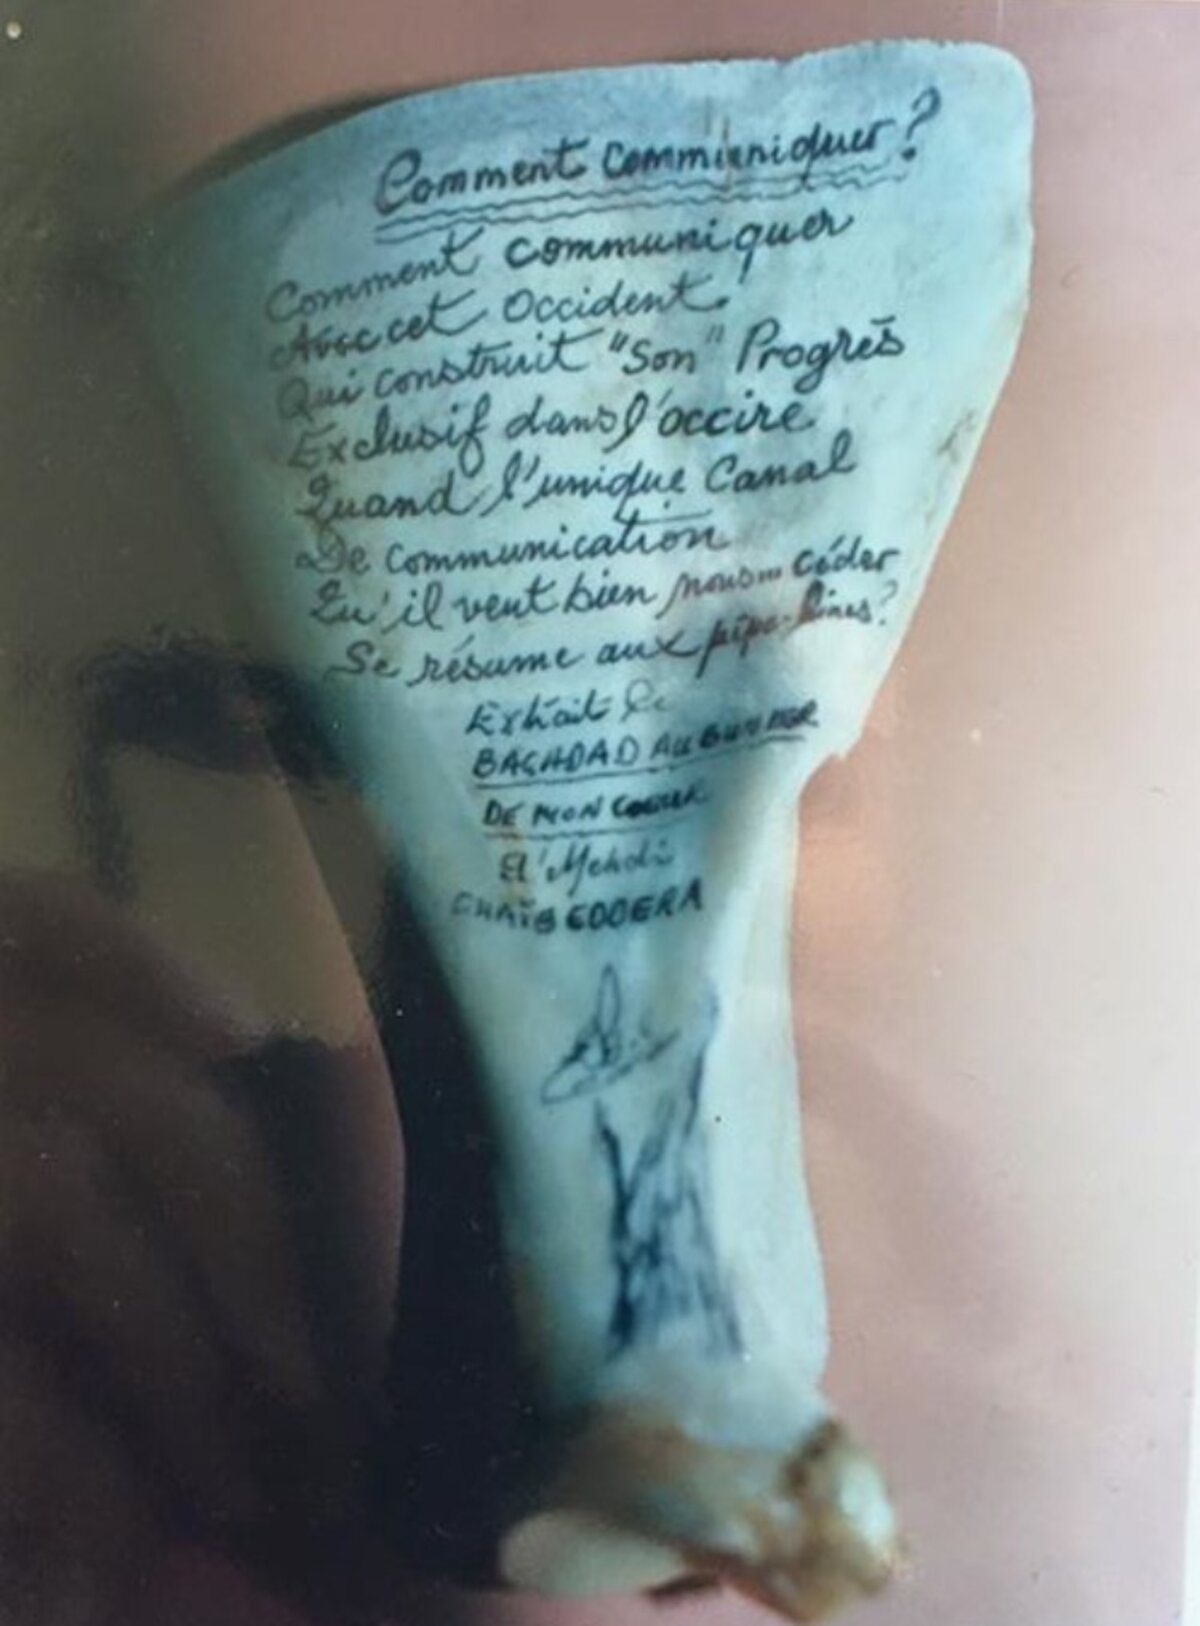 Comment communiquer?
Comment communiquer
Avec cet Occident
Qui construit "Son" Progrès
Exclusif dans l'occire
Quand l'unique Canal
De communication
Qu'il veut bien nous... céder
Se résume aux pipe-lines?
Extrait de
BAGHDAD AU
DE MON COEUR
El'Mehdi
CHAÏB EDDERA